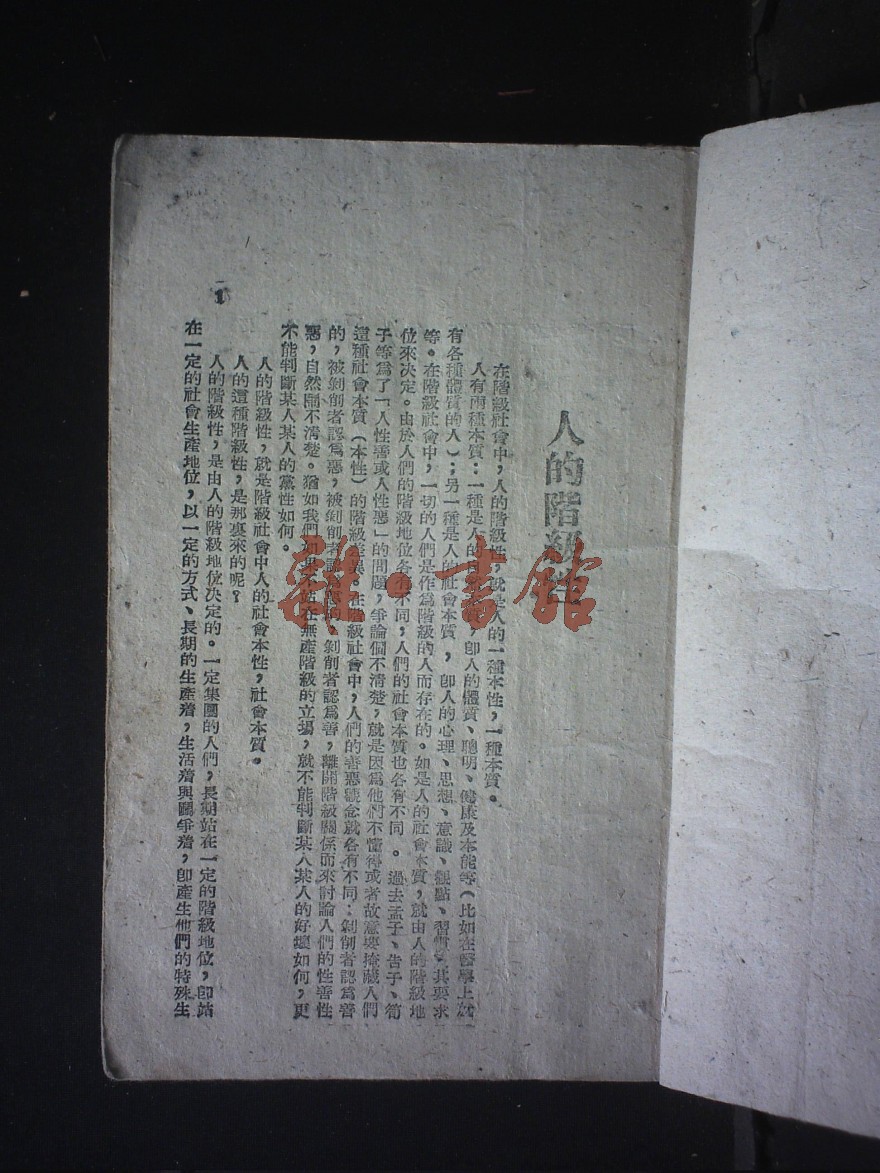 人的階級性
在階級社會中，人的階級性，就是人的一種本性，一種本質。
人有兩種本質：一種是人的，卽人的體質、聰明、健康及本能等（比如在醫學上就
有各種體質的人）；另一種是人的社會本質，卽人的心理、思想、意識、觀點、習慣、其要求
等。在階級社會中，一切的人們是作爲階級的人而存在的。如是人的社會本質，就由人的階級地
位來決定。由於人們的階級地位各有不同，人們的社會本質也各有不同。過去孟子、告子、荀
子等爲了「人性善或人性惡」的問題，爭論個不清楚，就是因爲他們不懂得或者故意要掩藏人們
這種社會本質（本性）的階級差異。在階級社會中，人們的善惡觀念就各有不同：剝削者認爲善
的，被剝削者認爲惡，被剝削者認爲的，剝削者認爲善，離開階級關係而來討論人們的性善性
惡，自然鬧不清楚。猶如我們如果不站在無產階級的立場，就不能判斷某人某人的好壞如何，更
不能判斷某人某人的黨性如何。
人的階級性，就是階級社會中人的社會本性，社會本質。
人的這種階級性，是那裏來的呢？
人的階級性，是由人的階級地位決定的。一定集團的人們，長期站在一定的階級地位，卽站
在一定的社會生產地位，以一定的方式、長期的生產着，生活着與鬭爭着，卽產生他們的特殊生
1
雜·書館